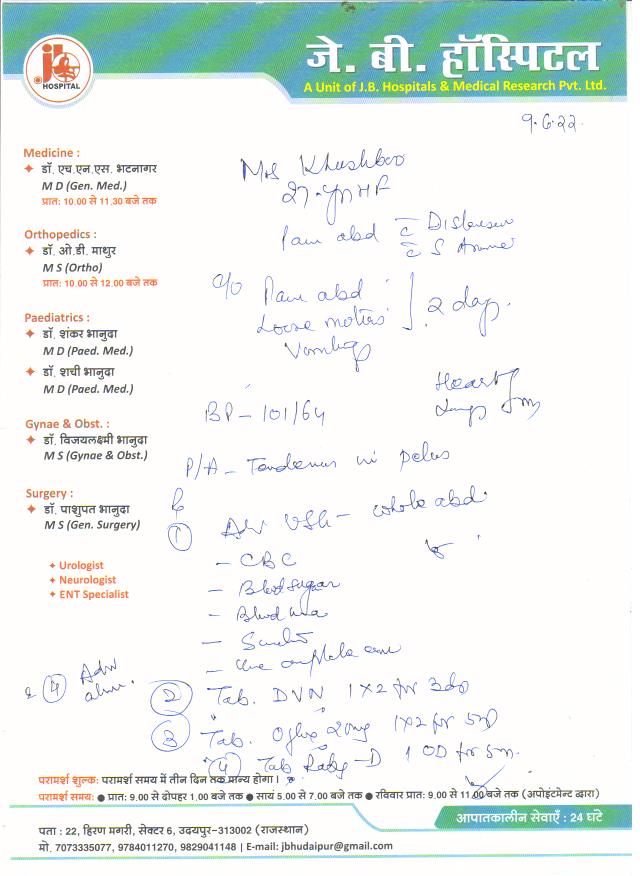 जे. बी. हॉस्पिटल
A Unit of J.B. Hospitals & Medical Research Pvt. Ltd.
jb
HOSPITAL
9.6.22
Medicine :
डॉ. एच.एन.एस. भटनागर
M D (Gen. Med.)
प्रात: 10.00 से 11.30 बजे तक
Orthopedics :
डॉ. ओ.डी. माथुर
M S (Ortho)
प्रात: 10.00 से 12.00 बजे तक
Paediatrics :
डॉ. शंकर भानुदा
M D (Paed. Med.)
डॉ. शची भानुदा
M D (Paed. Med.)
Gynae & Obst. :
डॉ. विजयलक्ष्मी भानुदा
M S (Gynae & Obst.)
Surgery :
डॉ. पाशुपत भानुदा
M S (Gen. Surgery)
Urologist
Neurologist
ENT Specialist
Mrs Khushboo
27
Pain abd
c/o Pain abd
Loose motions
Vomiting
2 day
Heart
Lungs
BP - 101/64
P/A - Tenderness in pelvis
1 Adv USG - whole abd
- CBC
- Blood sugar
- Blood urea
- Urine complete exam
4 Adv
2 Tab. DVN 1x2 for 3d
3 Tab. 200mg 1x2 for 5d
4 Tab -D 1 OD for 5
परामर्श शुल्क: परामर्श समय में तीन दिन तक मान्य होगा।
परामर्श समय: ● प्रात: 9.00 से दोपहर 1.00 बजे तक ● सायं 5.00 से 7.00 बजे तक ● रविवार प्रात: 9.00 से 11.00 बजे तक (अपोइंटमेन्ट द्वारा)
आपातकालीन सेवाएँ : 24 घंटे
पता : 22, हिरण मगरी, सेक्टर 6, उदयपुर-313002 (राजस्थान)
मो. 7073335077, 9784011270, 9829041148 | E-mail: jbhudaipur@gmail.com